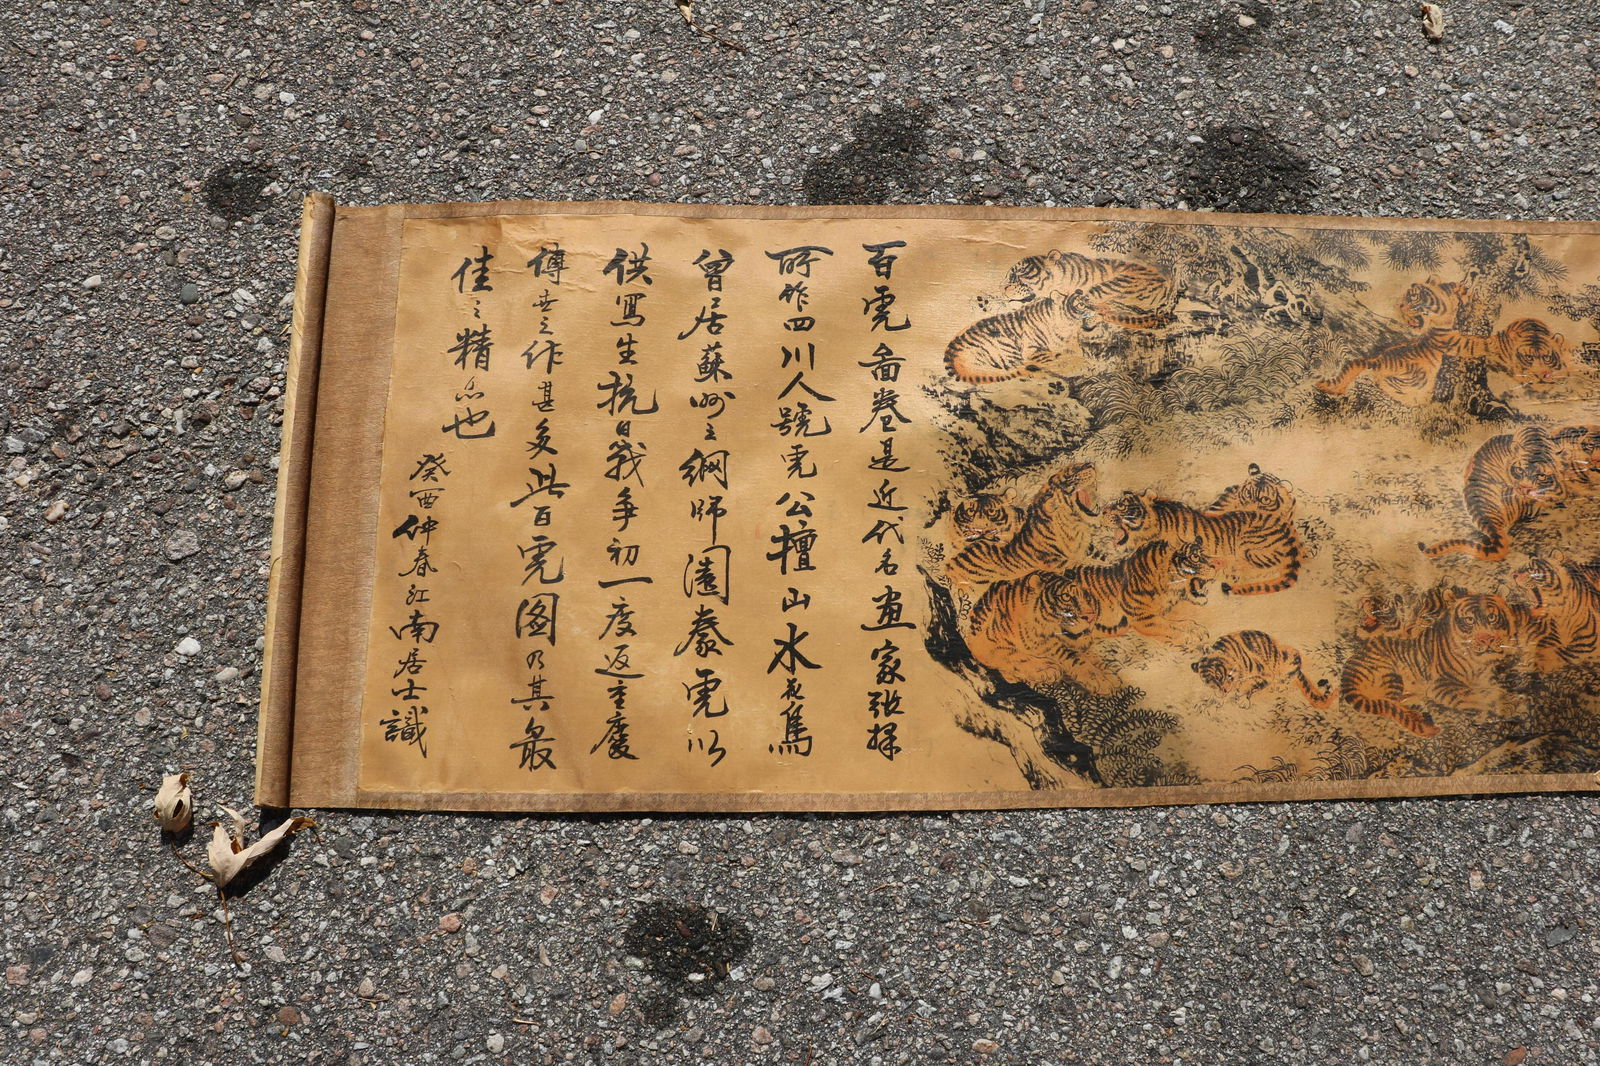 百虎啚卷是近代名画家張择
所作四川人號虎公擅山水花鳥
曾居蘇州之網师園豢虎以
供寫生抗日戰争初一度返重慶
傳世之作甚多此百虎图乃其最
佳之精品也
癸酉仲春江南居士識